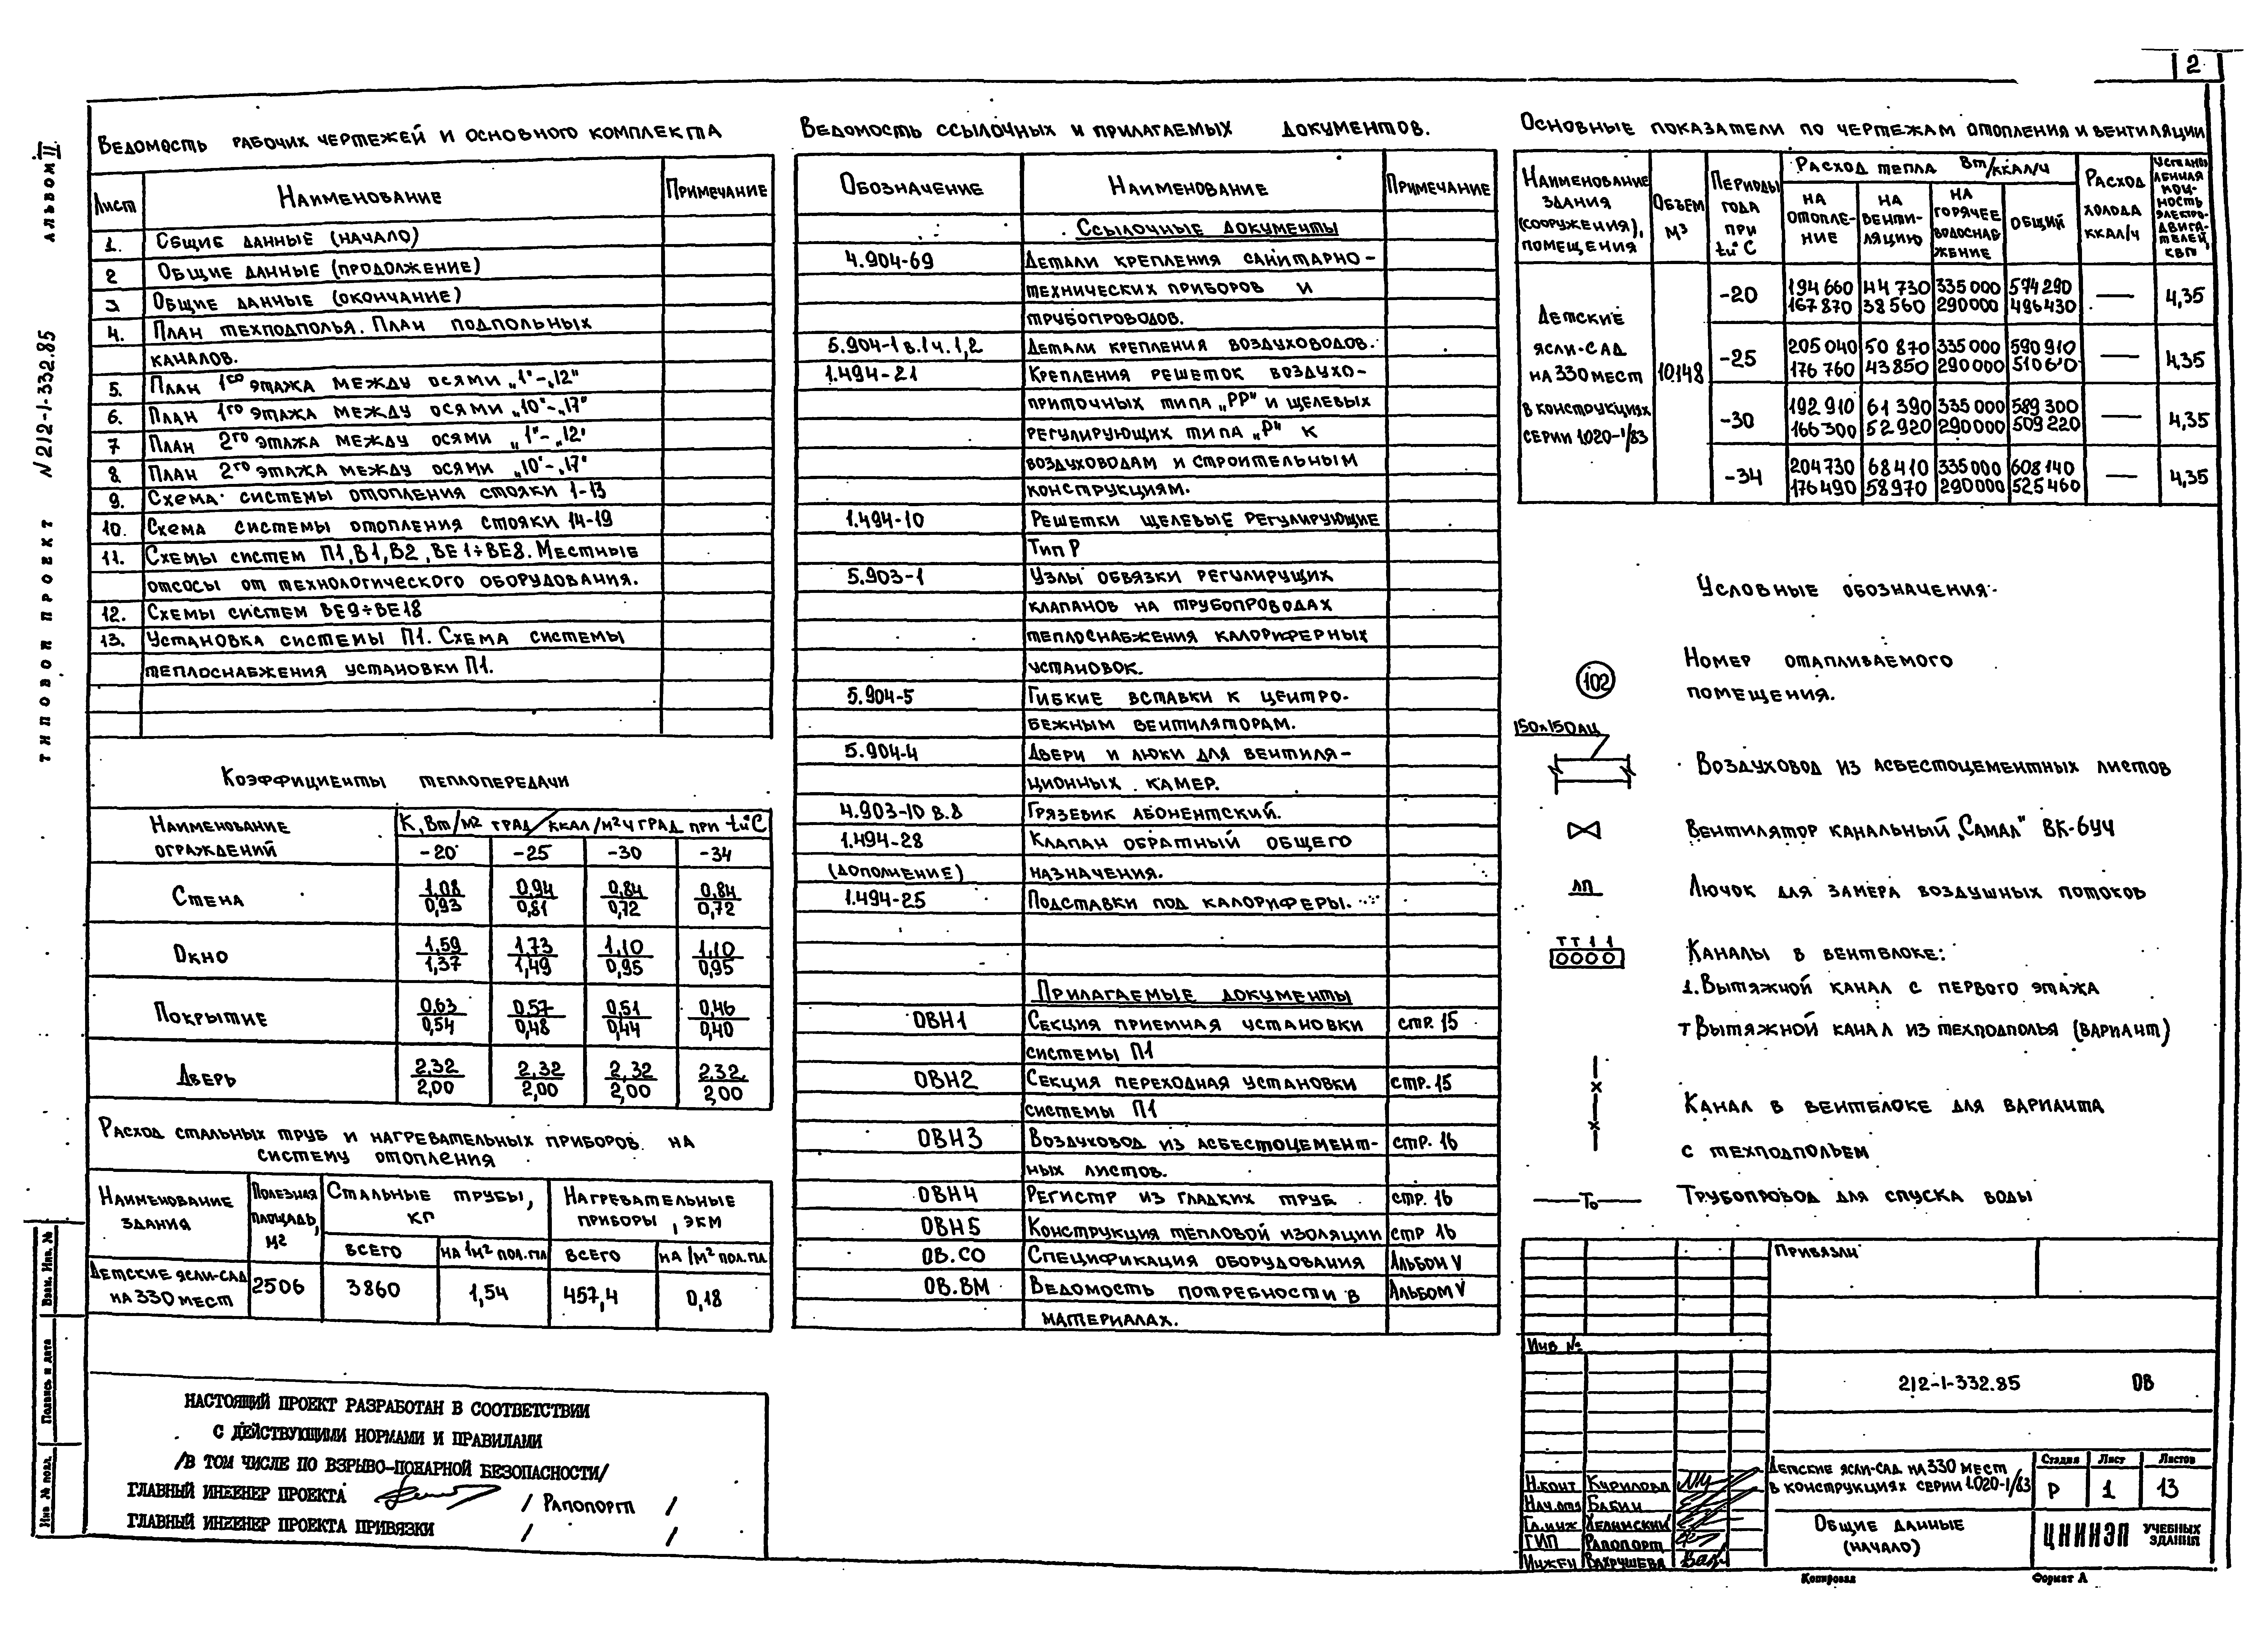 2
Альбом II
Типовой проект N 212-1-332.85
Ведомость рабочих чертежей и основного комплекта
Лист Наименование Примечание
1. Общие данные (начало)
2 Общие данные (продолжение)
3. Общие данные (окончание)
4. План техподполья. План подпольных
каналов.
5. План 1го этажа между осями „1"-„12"
6. План 1го этажа между осями „10"-„17"
7 План 2го этажа между осями „1"-„12"
8. План 2го этажа между осями „10"-„17"
9. Схема системы отопления стояки 1-13
10. Схема системы отопления стояки 14-19
11. Схемы систем П1, В1, В2, ВЕ1÷ВЕ8. Местные
отсосы от технологического оборудования.
12. Схемы систем ВЕ9÷ВЕ18
13. Установка системы П1. Схема системы
теплоснабжения установки П1.
Коэффициенты теплопередачи
Наименование ограждений
К, Вт/м2 град/ккал/м2 ч град при tн°С
-20 -25 -30 -34
Стена 1,08/0,93 0,94/0,81 0,84/0,72 0,84/0,72
Окно 1,59/1,37 1,73/1,49 1,10/0,95 1,10/0,95
Покрытие 0,63/0,54 0,57/0,48 0,51/0,44 0,46/0,40
Дверь 2,32/2,00 2,32/2,00 2,32/2,00 2,32/2,00
Расход стальных труб и нагревательных приборов на
систему отопления
Наименование здания Полезная площадь, м2 Стальные трубы, кг Нагревательные приборы, экм
всего на 1м2 пол.пл. всего на 1м2 пол.пл.
Детские ясли-сад
на 330 мест 2506 3860 1,54 457,4 0,18
НАСТОЯЩИЙ ПРОЕКТ РАЗРАБОТАН В СООТВЕТСТВИИ
С ДЕЙСТВУЮЩИМИ НОРМАМИ И ПРАВИЛАМИ
/В ТОМ ЧИСЛЕ ПО ВЗРЫВО-ПОЖАРНОЙ БЕЗОПАСНОСТИ/
ГЛАВНЫЙ ИНЖЕНЕР ПРОЕКТА / Рапопорт /
ГЛАВНЫЙ ИНЖЕНЕР ПРОЕКТА ПРИВЯЗКИ / /
Взам. Инв. №
Подпись и дата
Инв № подл.
Ведомость ссылочных и прилагаемых документов.
Обозначение Наименование Примечание
Ссылочные документы
4.904-69 Детали крепления санитарно-
технических приборов и
трубопроводов.
5.904-1 в.1 ч.1,2 Детали крепления воздуховодов.
1.494-21 Крепления решеток воздухо-
приточных типа „РР" и щелевых
регулирующих типа „Р" к
воздуховодам и строительным
конструкциям.
1.494-10 Решетки щелевые регулирующие
Тип Р
5.903-1 Узлы обвязки регулирущих
клапанов на трубопроводах
теплоснабжения калориферных
установок.
5.904-5 Гибкие вставки к центро-
бежным вентиляторам.
5.904-4 Двери и люки для вентиля-
ционных камер.
4.903-10 в.8 Грязевик абонентский.
1.494-28 Клапан обратный общего
(дополнение) назначения.
1.494-25 Подставки под калориферы.
Прилагаемые документы
ОВН1 Секция приемная установки стр. 15
системы П1
ОВН2 Секция переходная установки стр. 15
системы П1
ОВН3 Воздуховод из асбестоцемент- стр. 16
ных листов.
ОВН4 Регистр из гладких труб стр. 16
ОВН5 Конструкция тепловой изоляции стр 16
ОВ.СО Спецификация оборудования Альбом V
ОВ.ВМ Ведомость потребности в Альбом V
материалах.
Основные показатели по чертежам отопления и вентиляции
Наименование здания (сооружения), помещения Объем м3 Периоды года при tн°С Расход тепла Вт/ккал/ч Расход холода ккал/ч
на отопление на вентиляцию на горячее водоснабжение общий
Детские
ясли-сад
на 330 мест
в конструкциях
серии 1.020-1/83
10148
-20 194 660/167 870 44 730/38 560 335 000/290000 574 290/496 430 — 4,35
-25 205 040/176 760 50 870/43 850 335 000/290000 590 910/510 610 — 4,35
-30 192 910/166 300 61 390/52 920 335 000/290000 589 300/509 220 — 4,35
-34 204 730/176 490 68 410/58 970 335 000/290000 608 140/525 460 — 4,35
Условные обозначения:
102 Номер отапливаемого
помещения.
150х150АЦ
Воздуховод из асбестоцементных листов
Вентилятор канальный „Самал" ВК-6У4
ЛП Лючок для замера воздушных потоков
Т Т 1 1 Каналы в вентблоке:
1. Вытяжной канал с первого этажа
т Вытяжной канал из техподполья (вариант)
Канал в вентблоке для варианта
с техподпольем
То Трубопровод для спуска воды
Привязан
Инв №
212-1-332.85 ОВ
Н.конт Кирилова
Нач.отд Бабин
Гл.инж
ГИП Рапопорт
Инжен Вахрушева
Детские ясли-сад на 330 мест
в конструкциях серии 1.020-1/83
Стадия Лист Листов
Р 1 13
Общие данные
(начало)
ЦНИИЭП УЧЕБНЫХ ЗДАНИЙ
Копировал Формат А